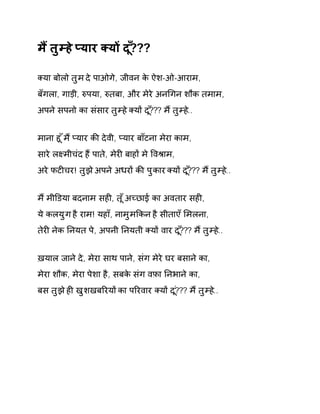 मैं तुम्हे प्यार क्यों दूँ???
क्या बोलो तुम दे पाओगे, जीवन के ऐश-ओ-आराम,
बँगला, गाड़ी, रुपया, रुतबा, और मेरे अनगिन शौक तमाम,
अपने सपनो का संसार तुम्हे क्यों दूँ??? मैं तुम्हे..
माना हूँ मैं प्यार की देवी, प्यार बाँटना मेरा काम,
सारे लक्ष्मीचंद हैं पाते, मेरी बाहों मे विश्राम,
अरे फटीचर! तुझे अपने अधरों की पुकार क्यों दूँ??? मैं तुम्हे..
मैं मीडिया बदनाम सही, तूँ अच्छाई का अवतार सही,
ये कलयुग है राम! यहाँ, नामुमकिन है सीताएँ मिलना,
तेरी नेक नियत पे, अपनी नियती क्यों वार दूँ??? मैं तुम्हे..
ख़याल जाने दे, मेरा साथ पाने, संग मेरे घर बसाने का,
मेरा शौक, मेरा पेशा है, सबके संग वफ़ा निभाने का,
बस तुझे ही खुशखबरियों का परिवार क्यों दूं??? मैं तुम्हे..